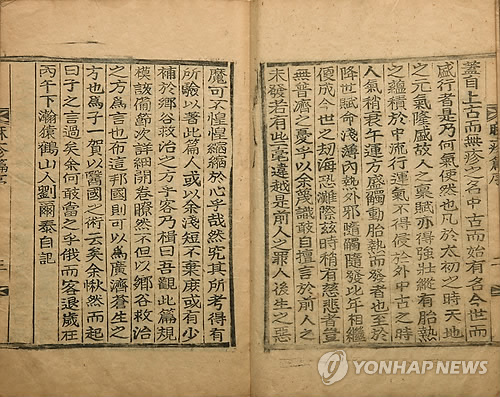 蓋自上古而無疹之名中古而始有名今世而
盛行者是乃何氣使然也凡於太初之時天地
之元氣隆盛故人之稟賦亦得強壯縱有胎熱
之蘊積於中流行運氣不得侵於外中古之時
人氣稍衰午運方盛觸動胎熱而發者也至於
降世賦命淺薄內熱外邪隨觸隨發比年相繼
便成今世之劫海恐難際玆時稍有慈悲者豈
無普濟之憂乎以余淺識敢自擅言於前人之
未發若有些毫違越是前人之罪人後生之惡
魔可不惶惶緬緬於心乎哉然究其所考得有
所驗以著此篇人或以余淺短不棄庶或有少
補於鄉谷救治之方乎客乃楫曰吾觀此篇規
模該備節次詳細開卷瞭然不但以鄉谷救治
之方爲言也布這邦國則可以爲廣濟蒼生之
方也爲子一賀以醫國之術云矣余愀然而起
曰子之言過矣余何敢當之乎俄而客退歲在
丙午下澣猿鶴山人劉爾泰自記
YONHAP NEWS